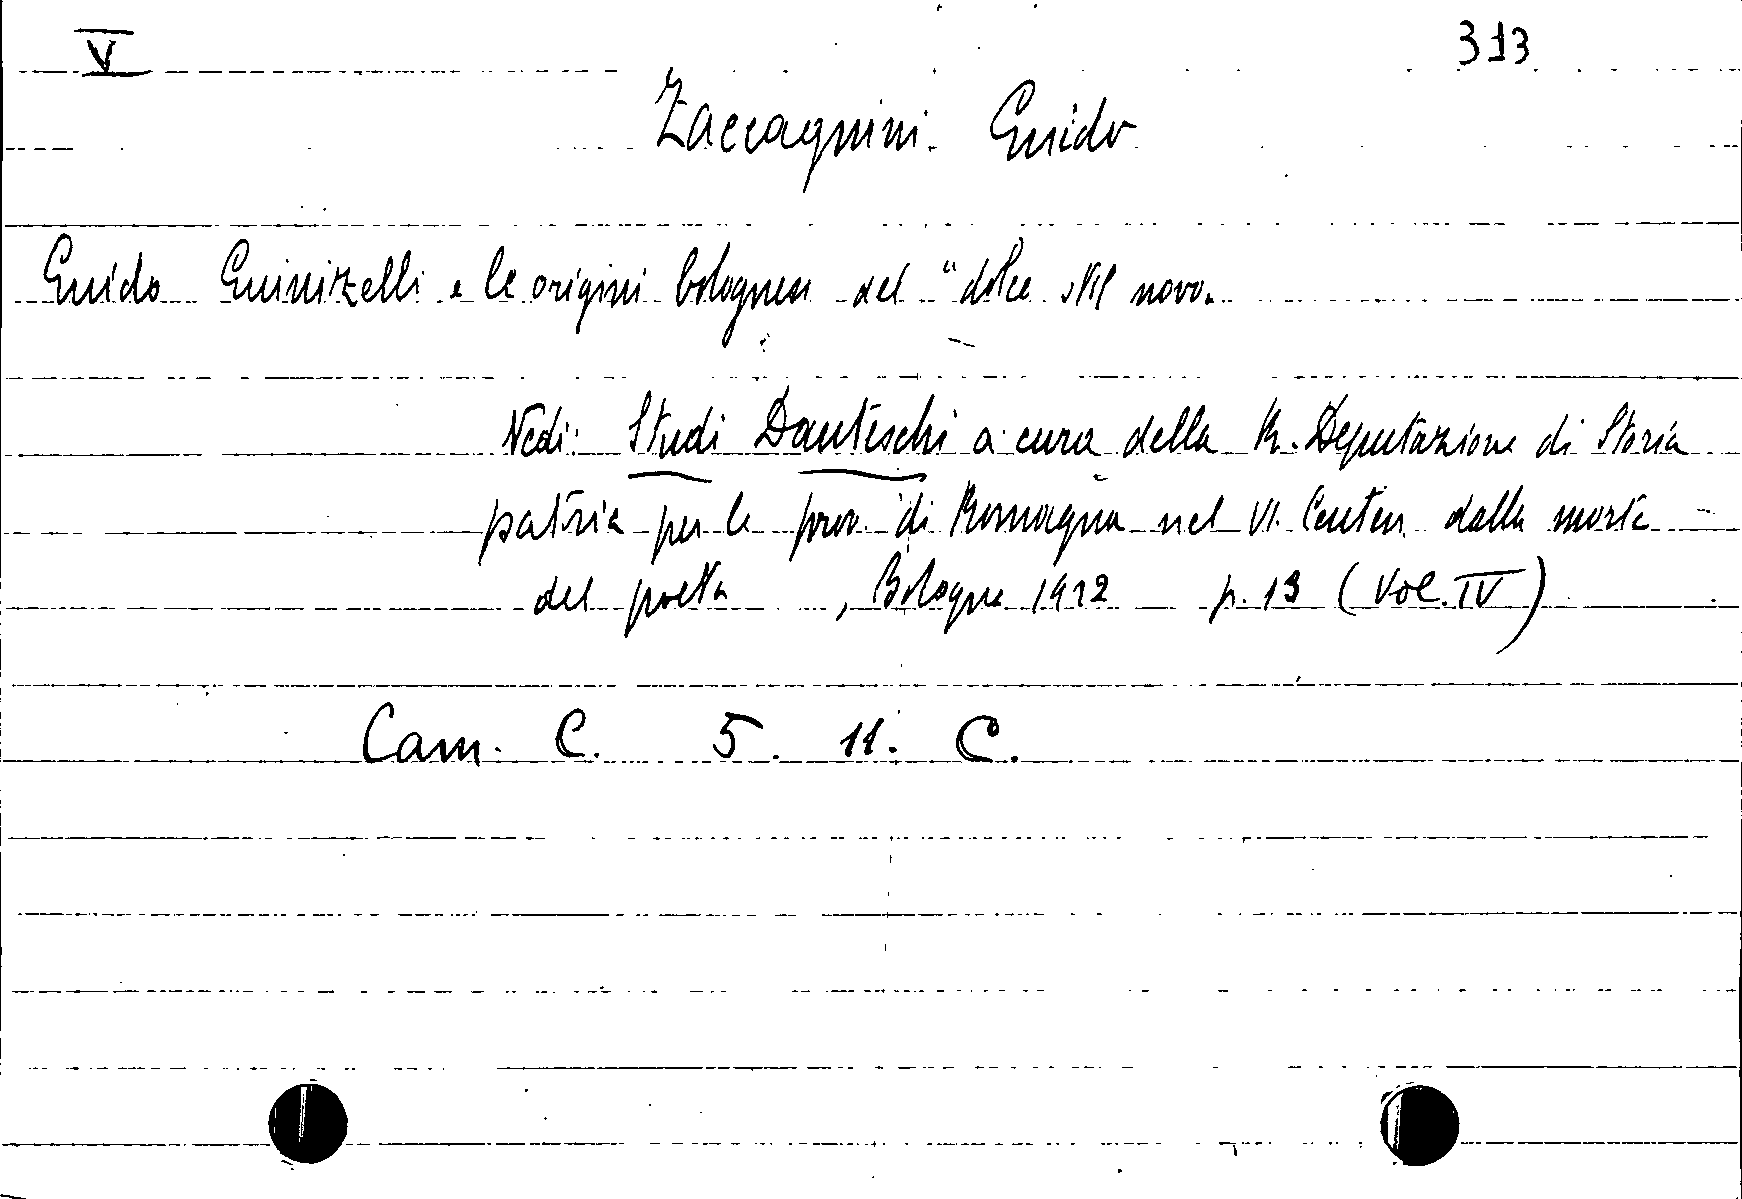 V 313
Zaccagnini. Guido
Guido Guinizelli e le origini bolognesi del "dolce stil novo.
Vedi: Studi Danteschi a cura della R. Deputazione di Storia
patria per le prov. di Romagna nel VI. Centen. dalla morte
del poeta , Bologna 1922 p. 13 (Vol. IV)
Cam. C. 5. 11. C.